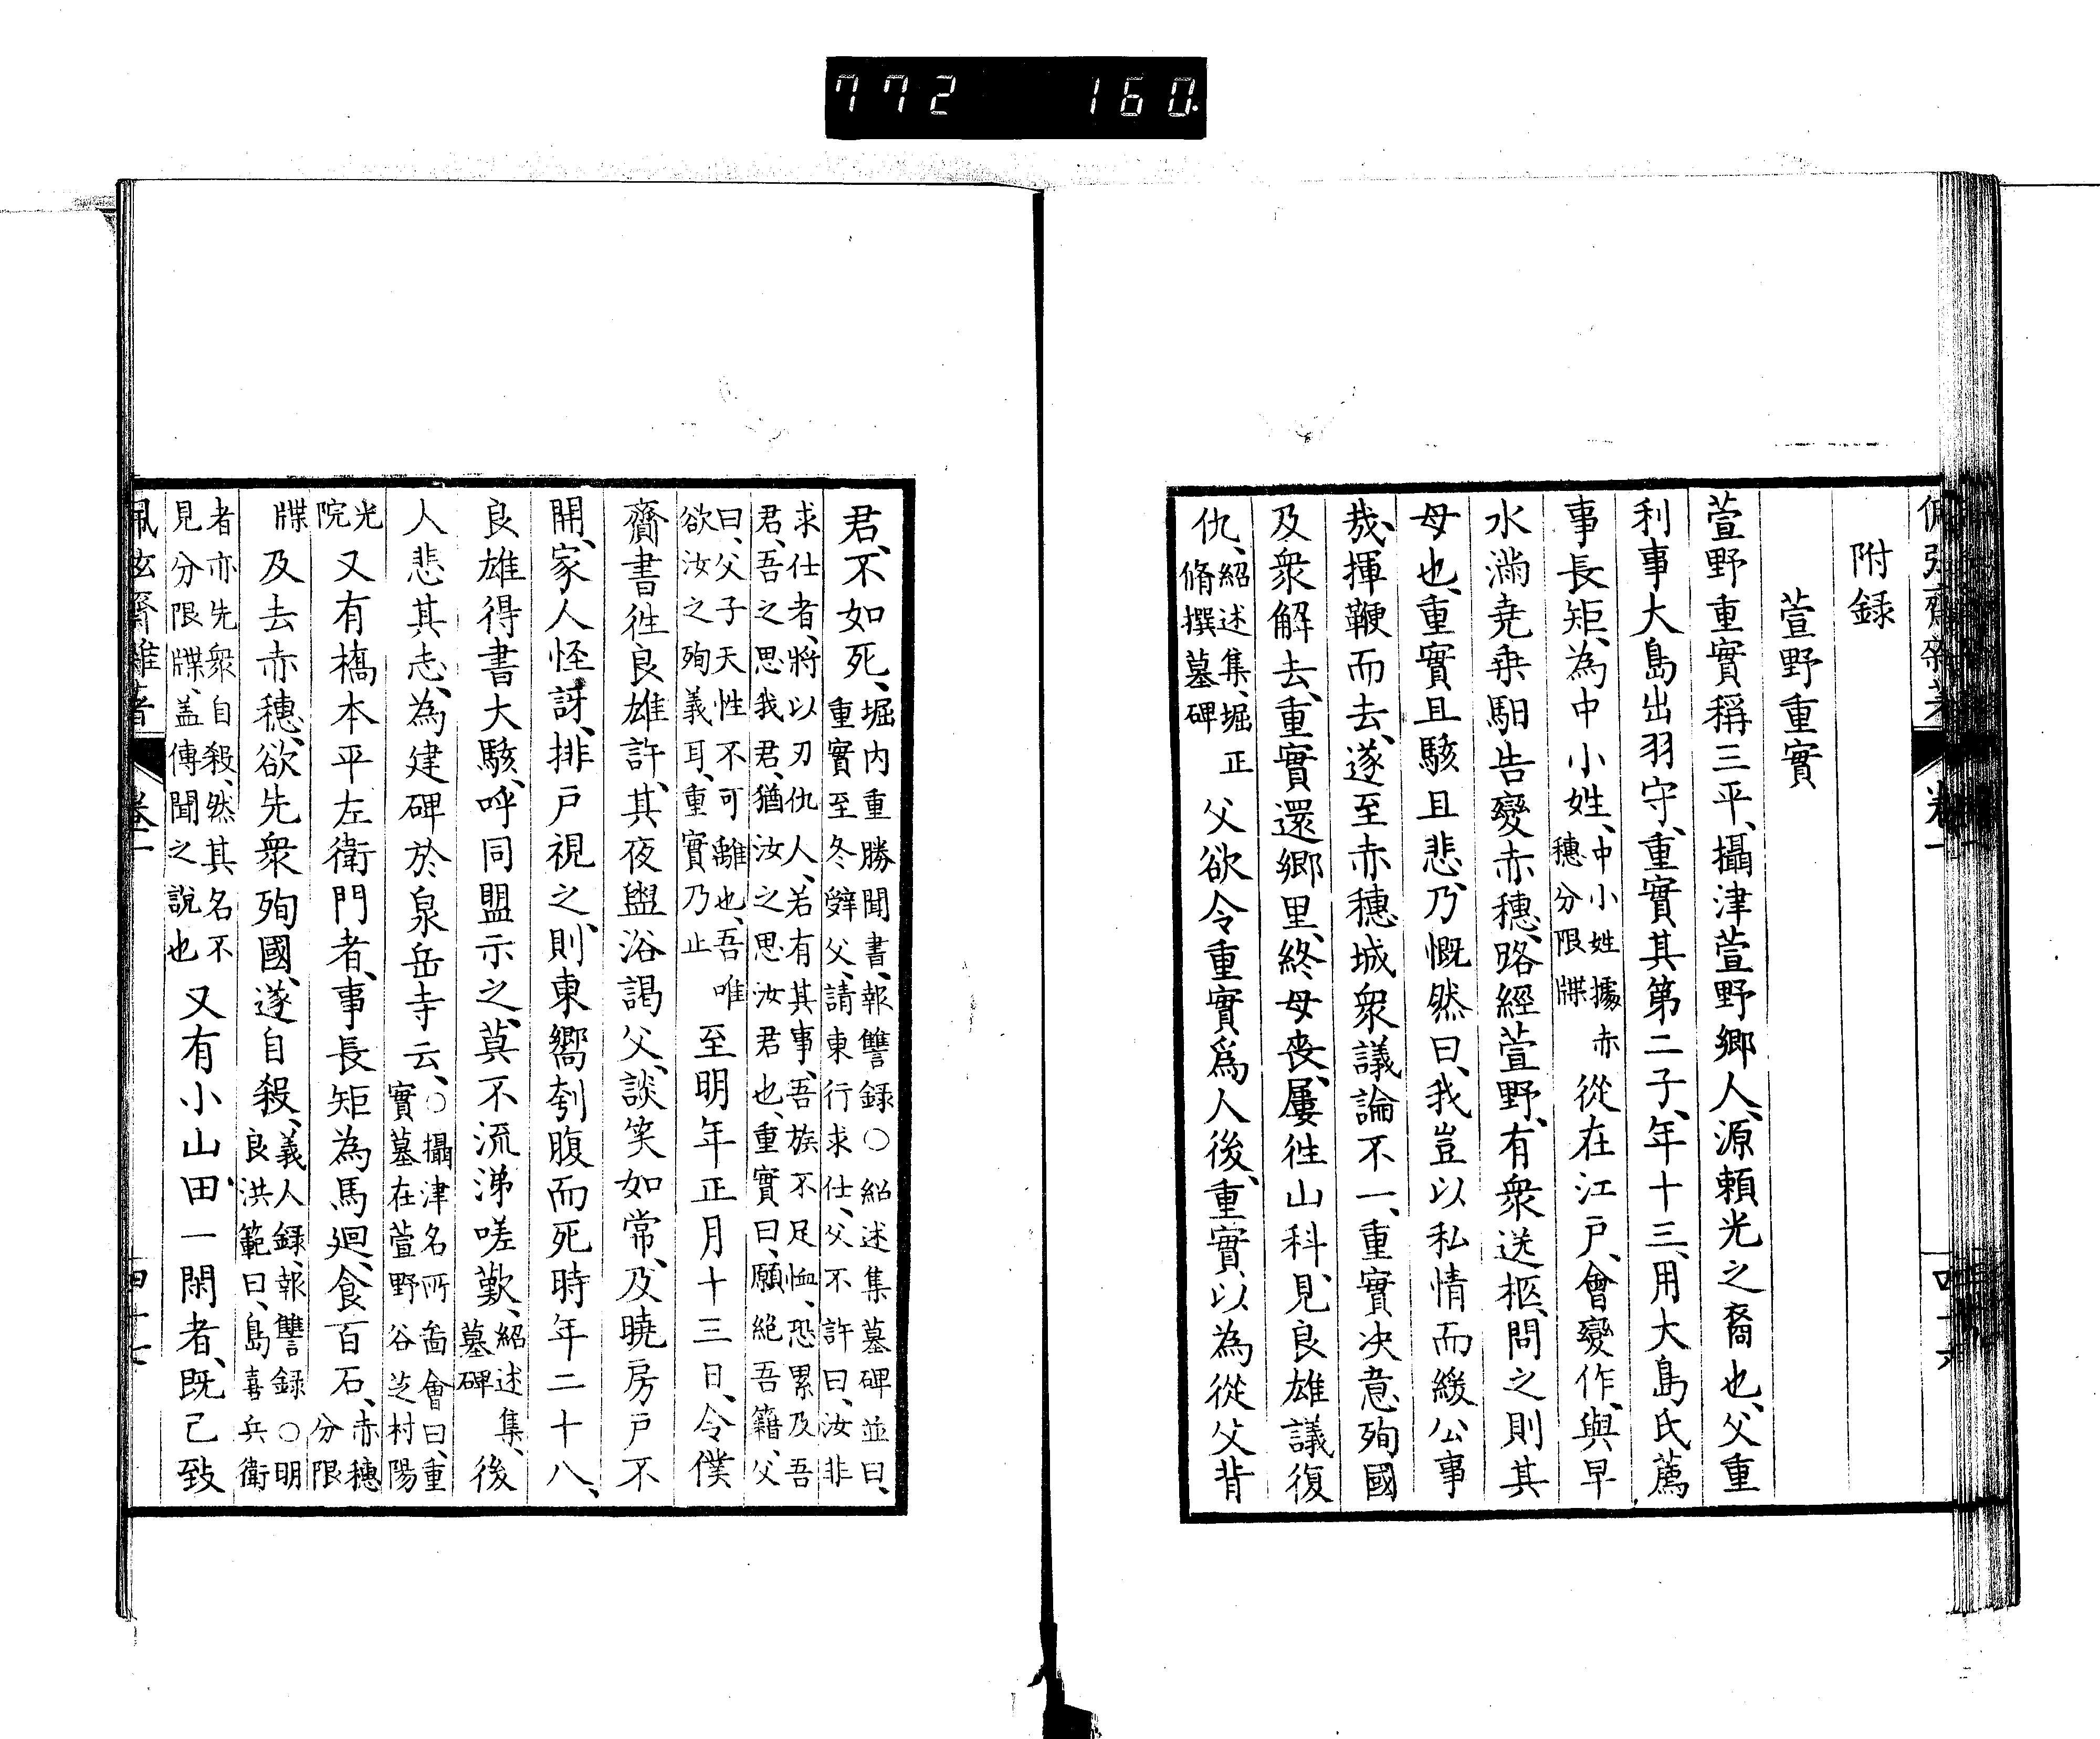 772 160
附録
萱野重實
萱野重實稱三平、攝津萱野郷人、源頼光之裔也、父重
利事大島出羽守、重實其第二子、年十三、用大島氏薦
事長矩、為中小姓、中小姓據赤
穗分限牒
從在江戸、會變作、與早
水滿尭乗馹告變赤穗、路經萱野、有衆送柩、問之則其
母也、重實且駭且悲、乃慨然曰、我豈以私情而緩公事
哉、揮鞭而去、遂至赤穗城衆議論不一、重實决意殉國
及衆解去、重實還郷里、終母喪、屢徃山科、見良雄議復
仇、紹述集、堀正
脩撰墓碑
父欲令重實爲人後、重實以為從父背
君、不如死、堀内重勝聞書、報讐録○紹述集墓碑並曰、
重實至冬辭父、請東行求仕、父不許曰、汝非
求仕者、將以刃仇人、若有其事、吾族不足恤、恐累及吾
君、吾之思我君、猶汝之思汝君也、重實曰、願絶吾籍、父
曰、父子天性不可離也、吾唯
欲汝之殉義耳、重實乃止
至明年正月十三日、令僕
齎書徃良雄許、其夜盥浴謁父、談笑如常、及曉房戸不
開、家人怪訝、排戸視之、則東嚮刳腹而死時年二十八、
良雄得書大駭、呼同盟示之、莫不流涕嗟歎、紹述集、
墓碑
後
人悲其志、為建碑於泉岳寺云、○攝津名所啚會曰、重
實墓在萱野谷芝村陽
光
院
又有橋本平左衛門者、事長矩為馬廻、食百石、赤穗
分限
牒
及去赤穗、欲先衆殉國、遂自殺、義人録、報讐録○明
良洪範曰、島喜兵衛
者亦先衆自殺、然其名不
見分限牒、盖傳聞之說也
又有小山田一閑者、既已致
佩弦齋雜著
卷一
四十七